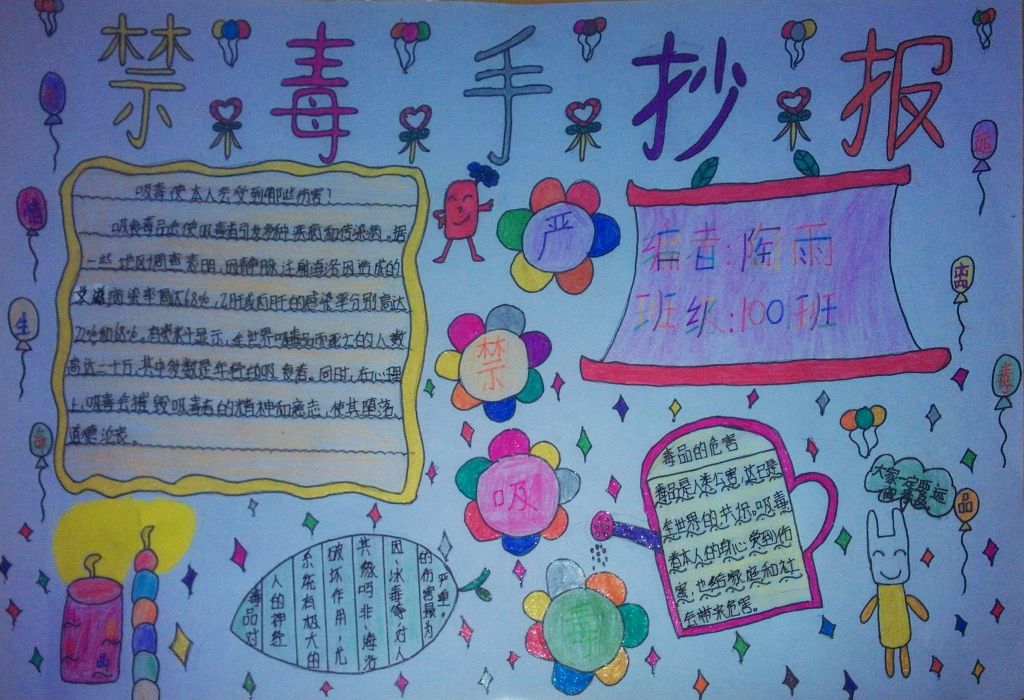 禁毒手抄报
吸毒使本人会受到那些伤害？
吸食毒品还使吸毒者引发多种疾病和传染病。据
一些地区调查表明，因静脉注射海洛因造成的
艾滋病染率高达68%，乙肝或丙肝的感染率分别高达
22%和68%。有统计显示，全世界吸毒品而死亡的人数
高达二十万，其中多数是年轻的吸食者。同时，在心理
上，吸毒会摧毁吸毒者的精神和意志，使其堕落、
道德沦丧。
严
禁
吸
毒
编者:陶雨
班级:100班
毒品的危害
毒品是人类公害，这已是
全世界的共识。吸毒
者本人的身心受到伤
害，也给家庭和社
会带来危害。
大家一定要远
离毒品。
毒品对
人的神经
系统有极大的
破坏作用，尤
其像吗非、海洛
因、冰毒等对人
的伤害最为
严重。
珍
惜
生
命
远
离
毒
品